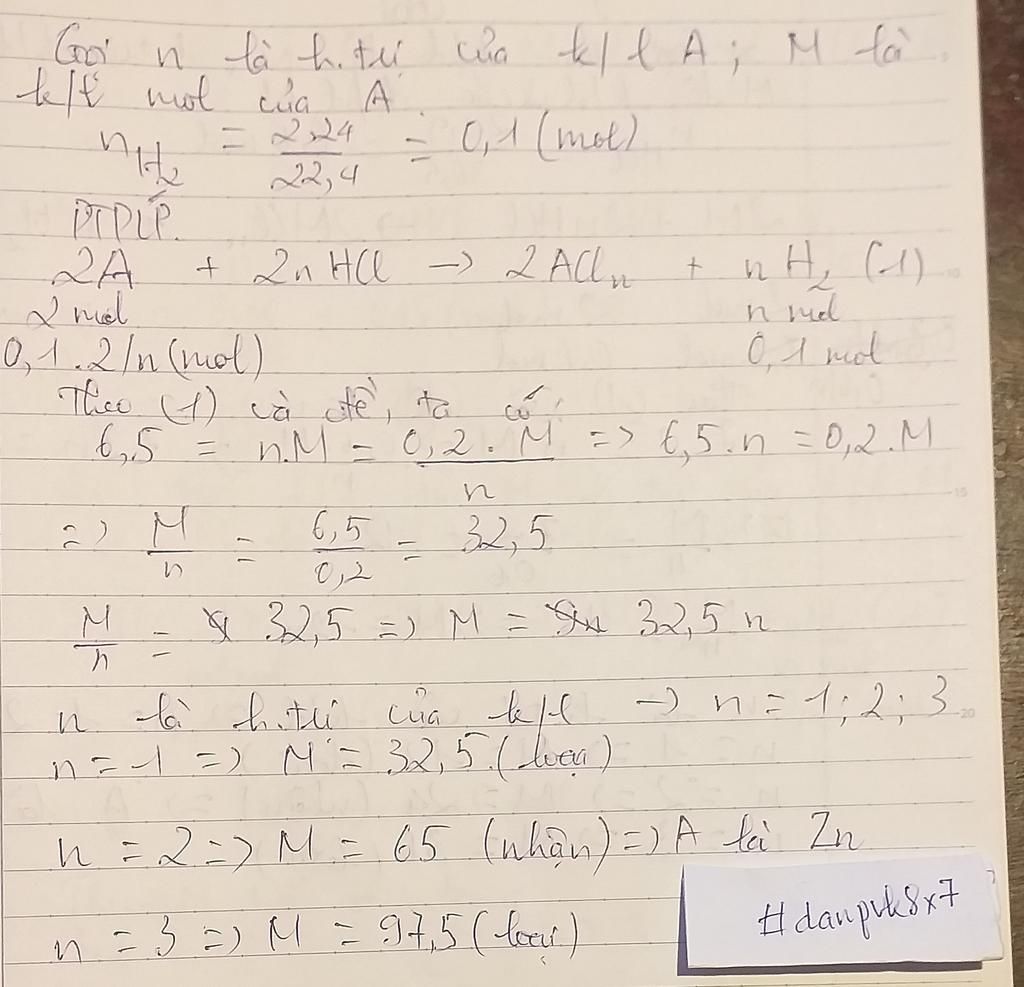 Gọi n là h.trị của k/l A; M là
k/l mol của A
n H₂ = 2,24/22,4 = 0,1 (mol)
PTPƯ
2A + 2nHCl → 2ACln + nH₂ (1)
2 mol n mol
0,1.2/n (mol) 0,1 mol
Theo (1) và đề, ta có:
6,5 = n.M = 0,2.M/n => 6,5.n = 0,2.M
=> M/n = 6,5/0,2 = 32,5
M/n = 32,5 => M = 32,5 n
n là h.trị của k/l → n = 1; 2; 3
n = 1 => M = 32,5 (loại)
n = 2 => M = 65 (nhận) => A là Zn
n = 3 => M = 97,5 (loại)
#danpvk8x7
10
15
20